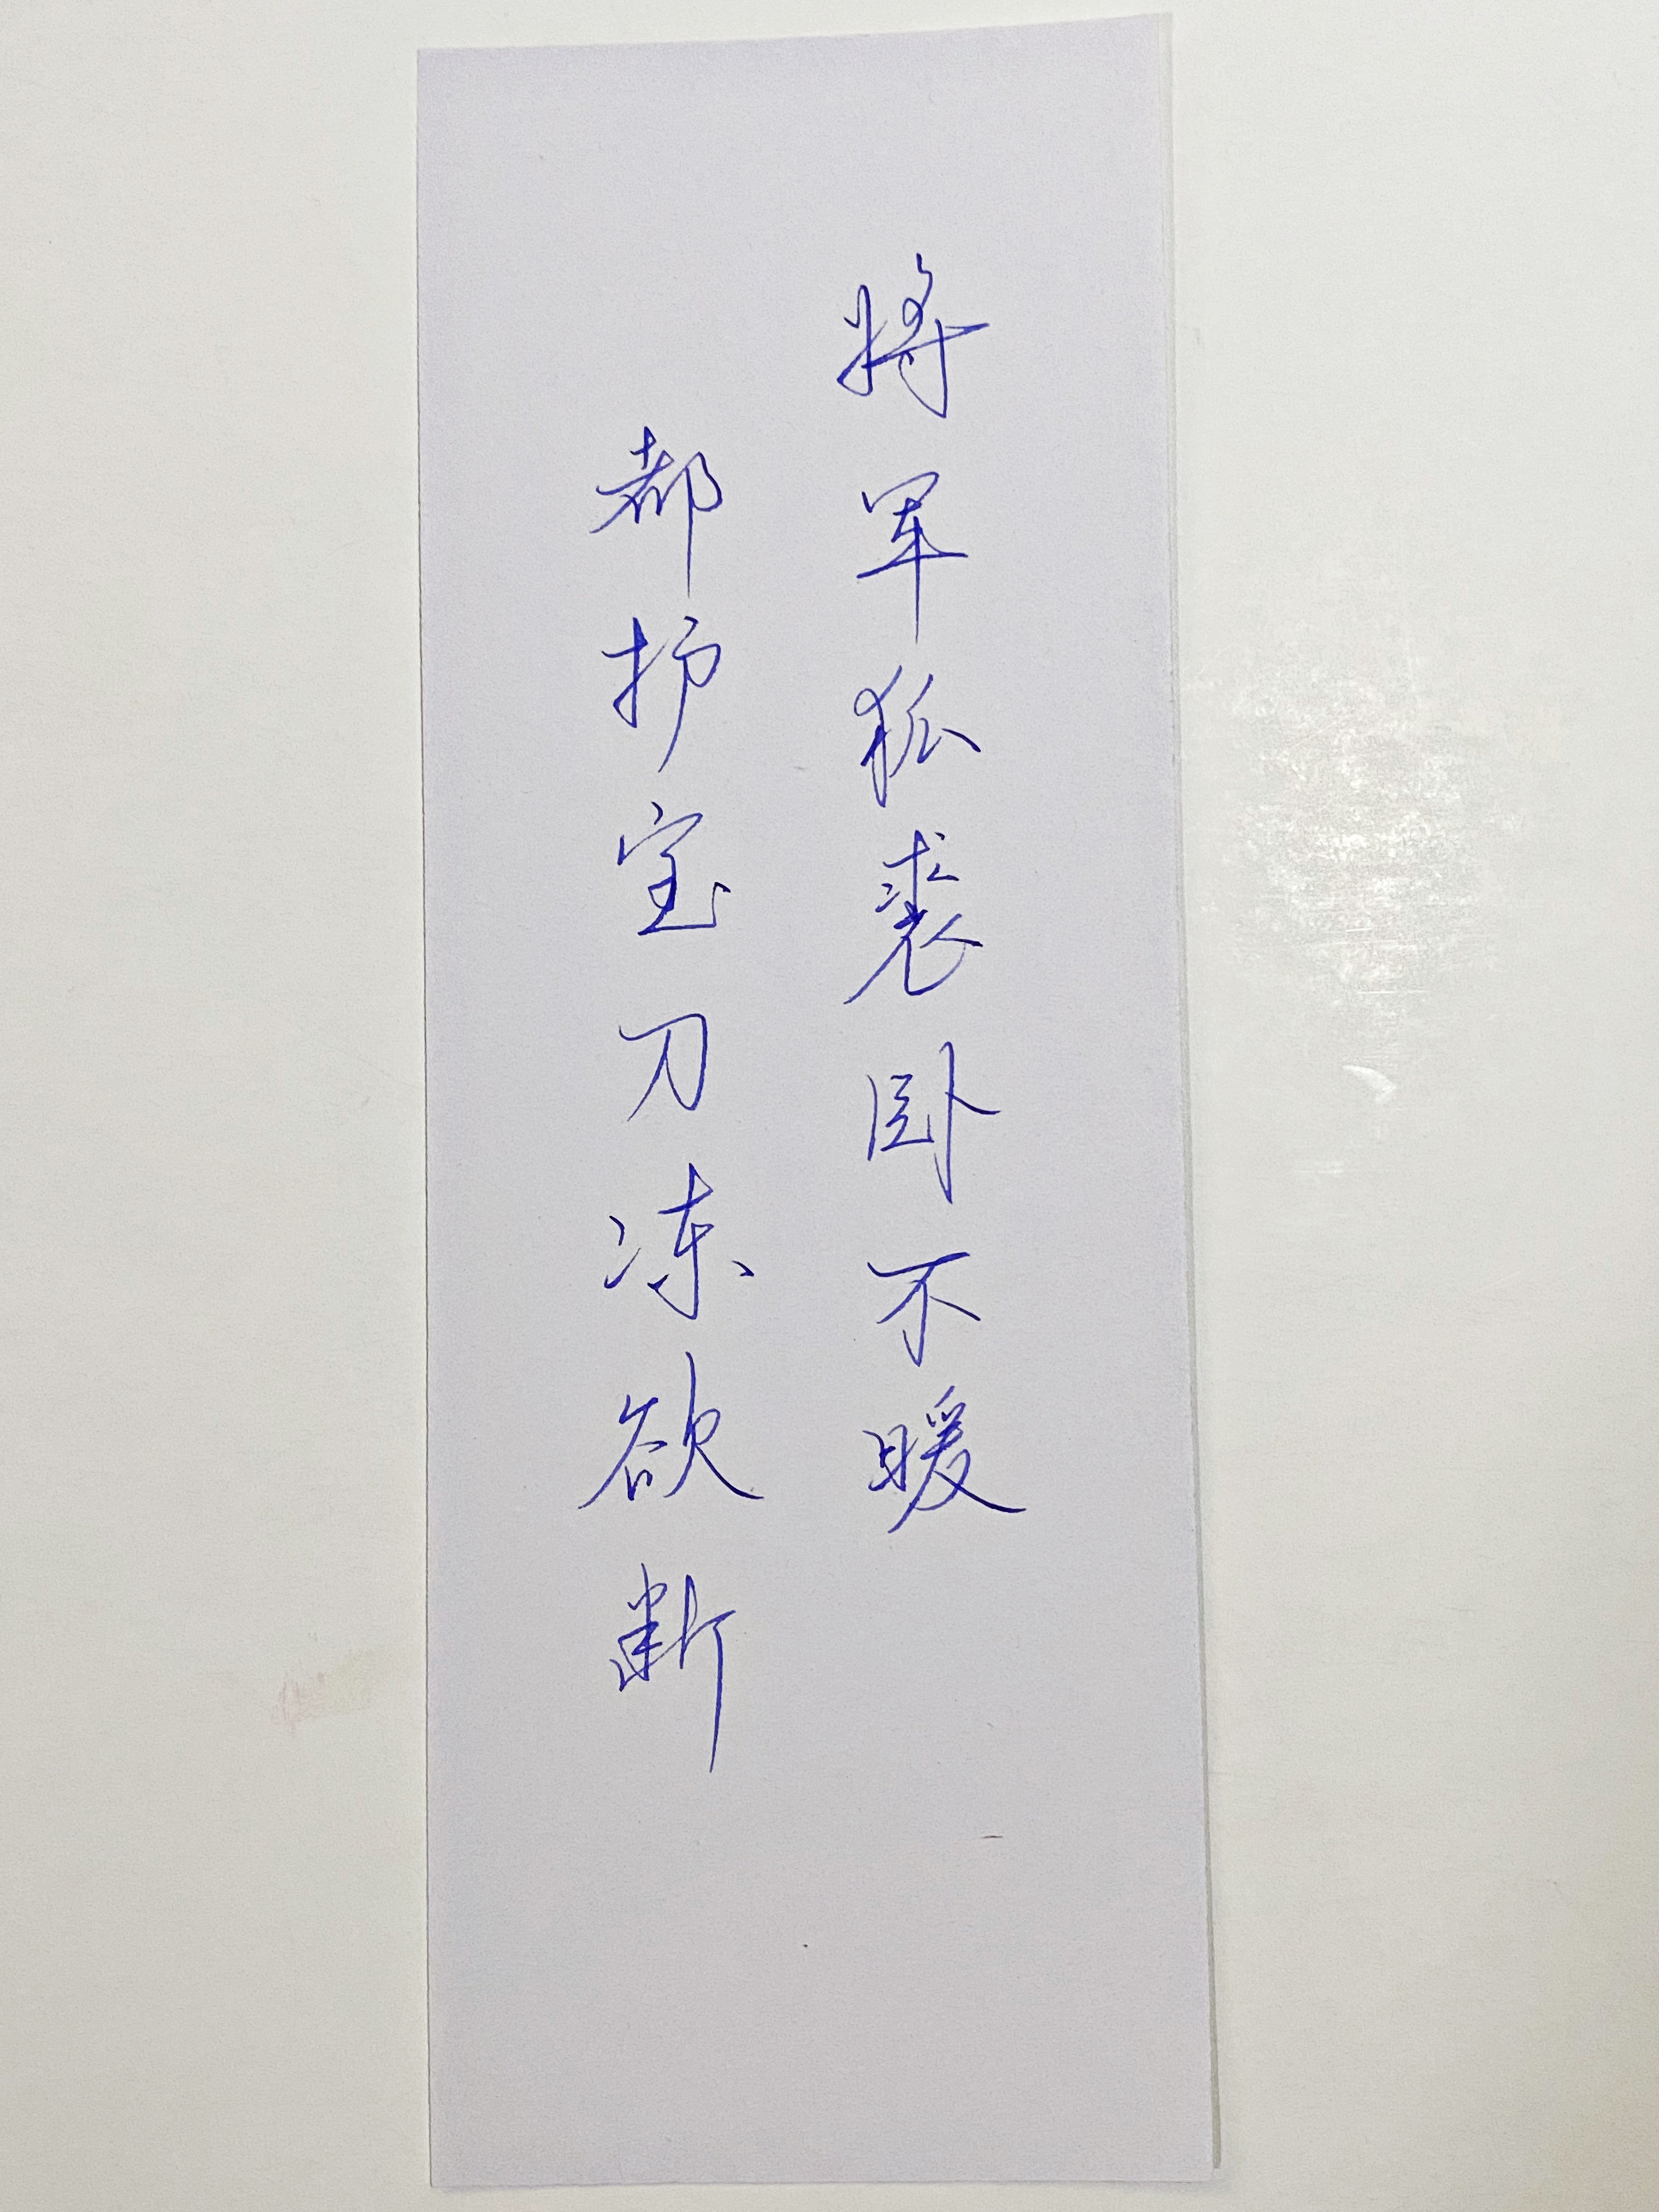 将军狐裘卧不暖
都护宝刀冻欲断